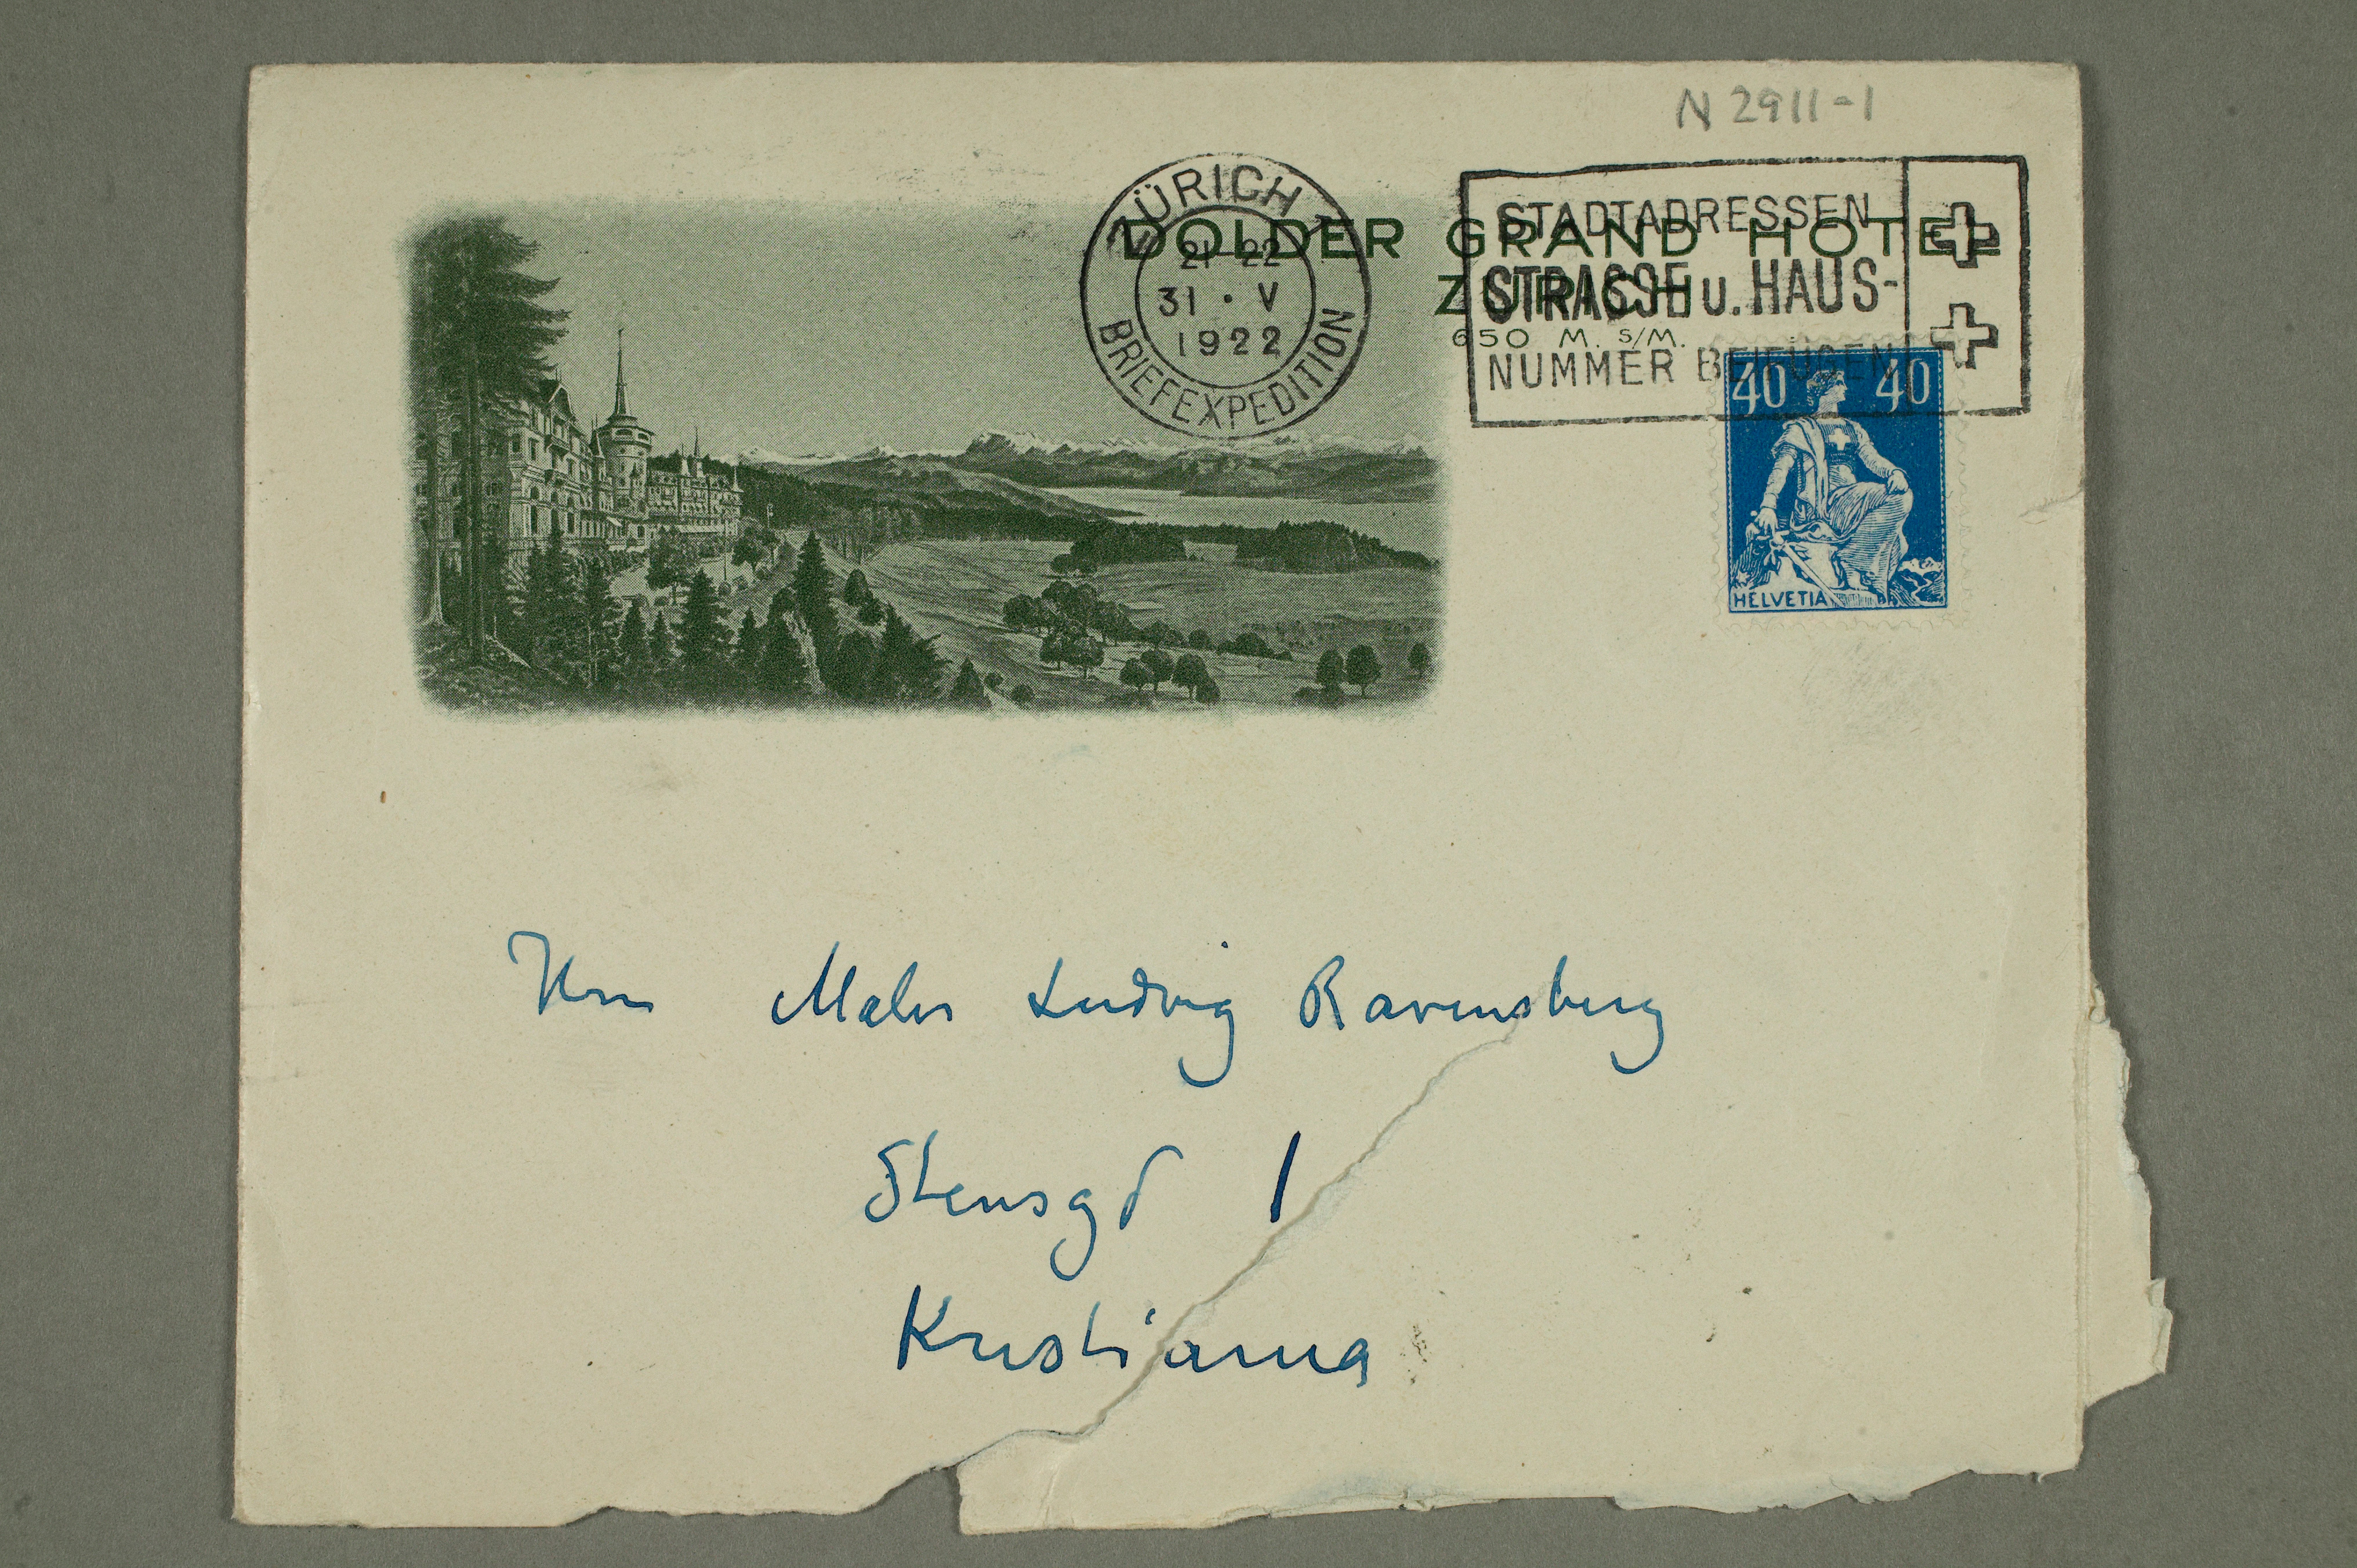 N 2911-1
ZÜRICH 1
21-22
31 · V
1922
BRIEFEXPEDITION
DOLDER GRAND HOTEL
ZÜRICH
650 M. S/M.
STADTADRESSEN
STRASSE u. HAUS-
NUMMER BEIFÜGEN
40 40
HELVETIA
Herrn Maler Ludvig Ravensberg
Stensgd 1
Kristiania